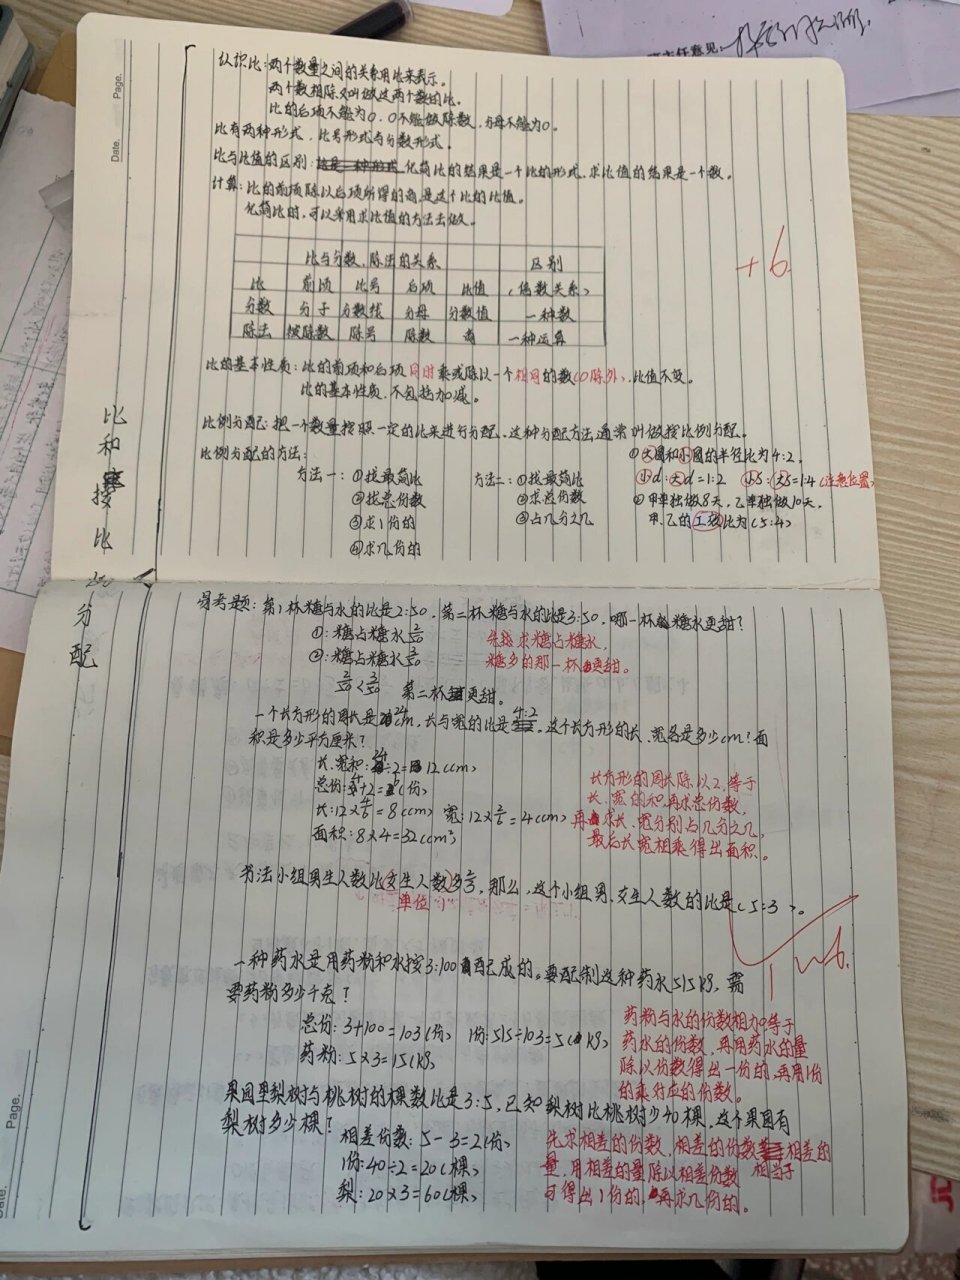 Date.
Page.
主任意见
比和按比分配
认识比:两个数量之间的关系用比来表示。
两个数相除又叫做这两个数的比。
比的后项不能为0。0不能做除数,分母不能为0。
比有两种形式,比号形式与分数形式。
比与比值的区别:化简比的结果是一个比的形式,求比值的结果是一个数。
计算:比的前项除以后项所得的商,是这个比的比值。
化简比时,可以采用求比值的方法去做。
+6.
比与分数、除法的关系 区别
比 前项 比号 后项 比值 (倍数关系)
分数 分子 分数线 分母 分数值 一种数
除法 被除数 除号 除数 商 一种运算
比的基本性质:比的前项和后项同时乘或除以一个相同的数(0除外),比值不变。
比的基本性质,不包括加减。
比例分配:把一个数量按照一定的比来进行分配。这种分配方法通常叫做按比例分配。
比例分配的方法:
方法一:①找最简比
②找总份数
③求1份的
④求几份的
方法二:①找最简比
②求总份数
③占几分之几
①大圆和小圆的半径比为4:2,
小d:大d=1:2 小S:大S=1:4(注意位置)
②甲单独做8天,乙单独做10天,
甲、乙的工效比为(5:4)
易考题:第1杯糖与水的比是2:50,第二杯糖与水的比是3:50,哪一杯糖水更甜?
①:糖占糖水2/50
②:糖占糖水3/50
2/50<3/50 第二杯更甜。
先求糖占糖水,
糖多的那一杯更甜。
一个长方形的周长是24cm,长与宽的比是4:2,这个长方形的长、宽各是多少cm?面
积是多少平方厘米?
长、宽和:24÷2=12(cm)
总份:4+2=6(份)
长:12×4/6=8(cm) 宽:12×2/6=4(cm)
面积:8×4=32(cm²)
长方形的周长除以2,等于
长、宽的和,再求总份数,
再求长、宽分别占几分之几,
最后长宽相乘得出面积。
书法小组男生人数比女生人数多2/3,那么,这个小组男、女生人数的比是(5:3)。
单位"1"
一种药水是用药粉和水按3:100配成的。要配制这种药水515kg,需
要药粉多少千克?
总份:3+100=103(份) 1份:515÷103=5(kg)
药粉:5×3=15(kg)
药粉与水的份数相加等于
药水的份数,再用药水的量
除以份数得出一份的,再用1份
的乘对应的份数。
果园里梨树与桃树的棵数比是3:5,已知梨树比桃树少40棵,这个果园有
梨树多少棵?
相差份数:5-3=2(份)
1份:40÷2=20(棵)
梨:20×3=60(棵)
先求相差的份数,相差的份数相当于相差的
量,用相差的量除以相差份数
可得出1份的,再求几份的。
Page.
Date.